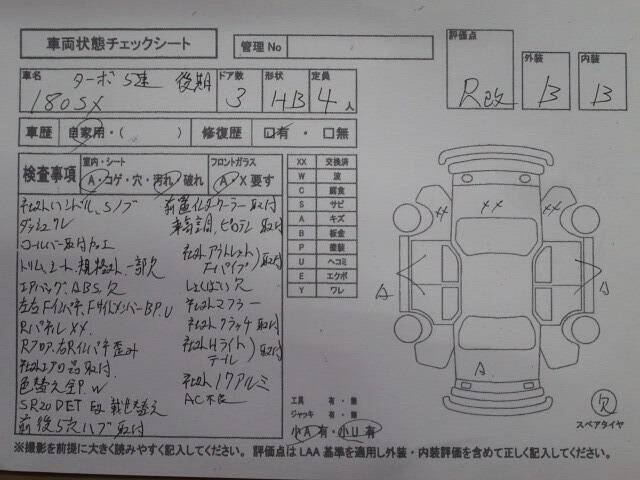 車両状態チェックシート
管理No
評価点
R改
外装
B
内装
B
車名
ターボ 5速 後期
180SX
ドア数
3
形状
HB
定員
4人
車歴 自家用・( ) 修復歴 □有・□無
検査事項
室内・シート
A・コゲ・穴・汚れ・破れ
フロントガラス
A・X要す
社外ハンドル、Sノブ
ダッシュワレ
ロールバー取付加工
トリム、シート、規格外、一部欠
エアバッグ、ABS欠
左右Fインパネ、FサイドメンバーBP.U
RパネルXX.
Rフロア、右Rインパネ歪み
社外エアロ品取付
色替え全P.W
SR20DET 載せ替え
前後5穴ハブ取付
前置インタークーラー取付
車高調、ピロアーム取付
社外アウトレット
Fパイプ 取付
社外マフラー
社外クラッチ取付
社外Hライト
テール 取付
社外17アルミ
AC不良
XX 交換済
W 波
C 腐食
S サビ
A キズ
B 板金
P 塗装
U ヘコミ
E エクボ
Y ワレ
工具 有・無
ジャッキ 有・無
小A有・小U有
XX
XX
XX
A
A
A
欠
スペアタイヤ
※撮影を前提に大きく読みやすく記入してください。評価点はLAA基準を適用し外装・内装評価を含めて正しく記入してください。